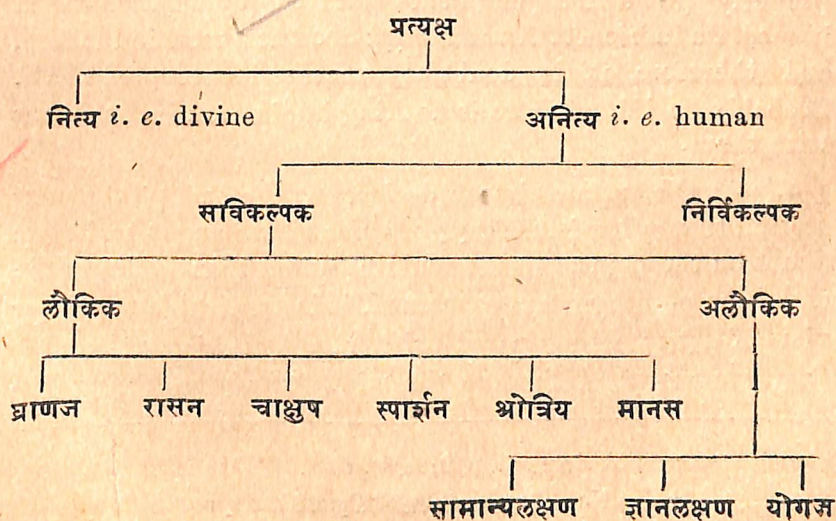 प्रत्यक्ष
नित्य i. e. divine अनित्य i. e. human
सविकल्पक निर्विकल्पक
लौकिक अलौकिक
घ्राणज रासन चाक्षुष स्पार्शन श्रोत्रिय मानस
सामान्यलक्षण ज्ञानलक्षण योगज